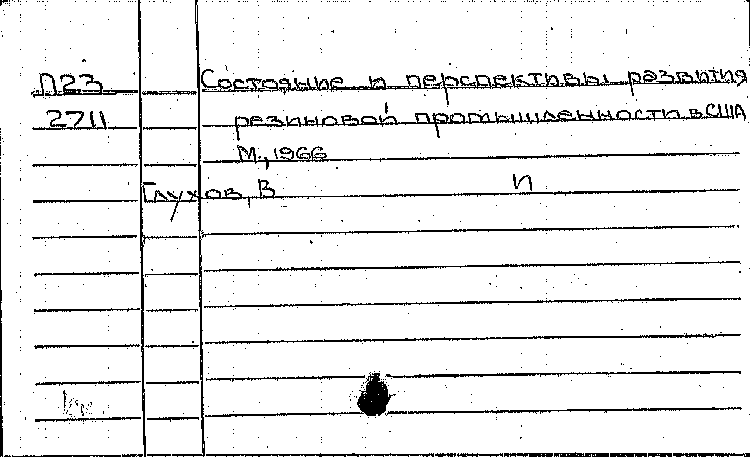 П23 Состояние и перспективы развития
2711 резиновой промышленности в США
М., 1966
Глухов, В и